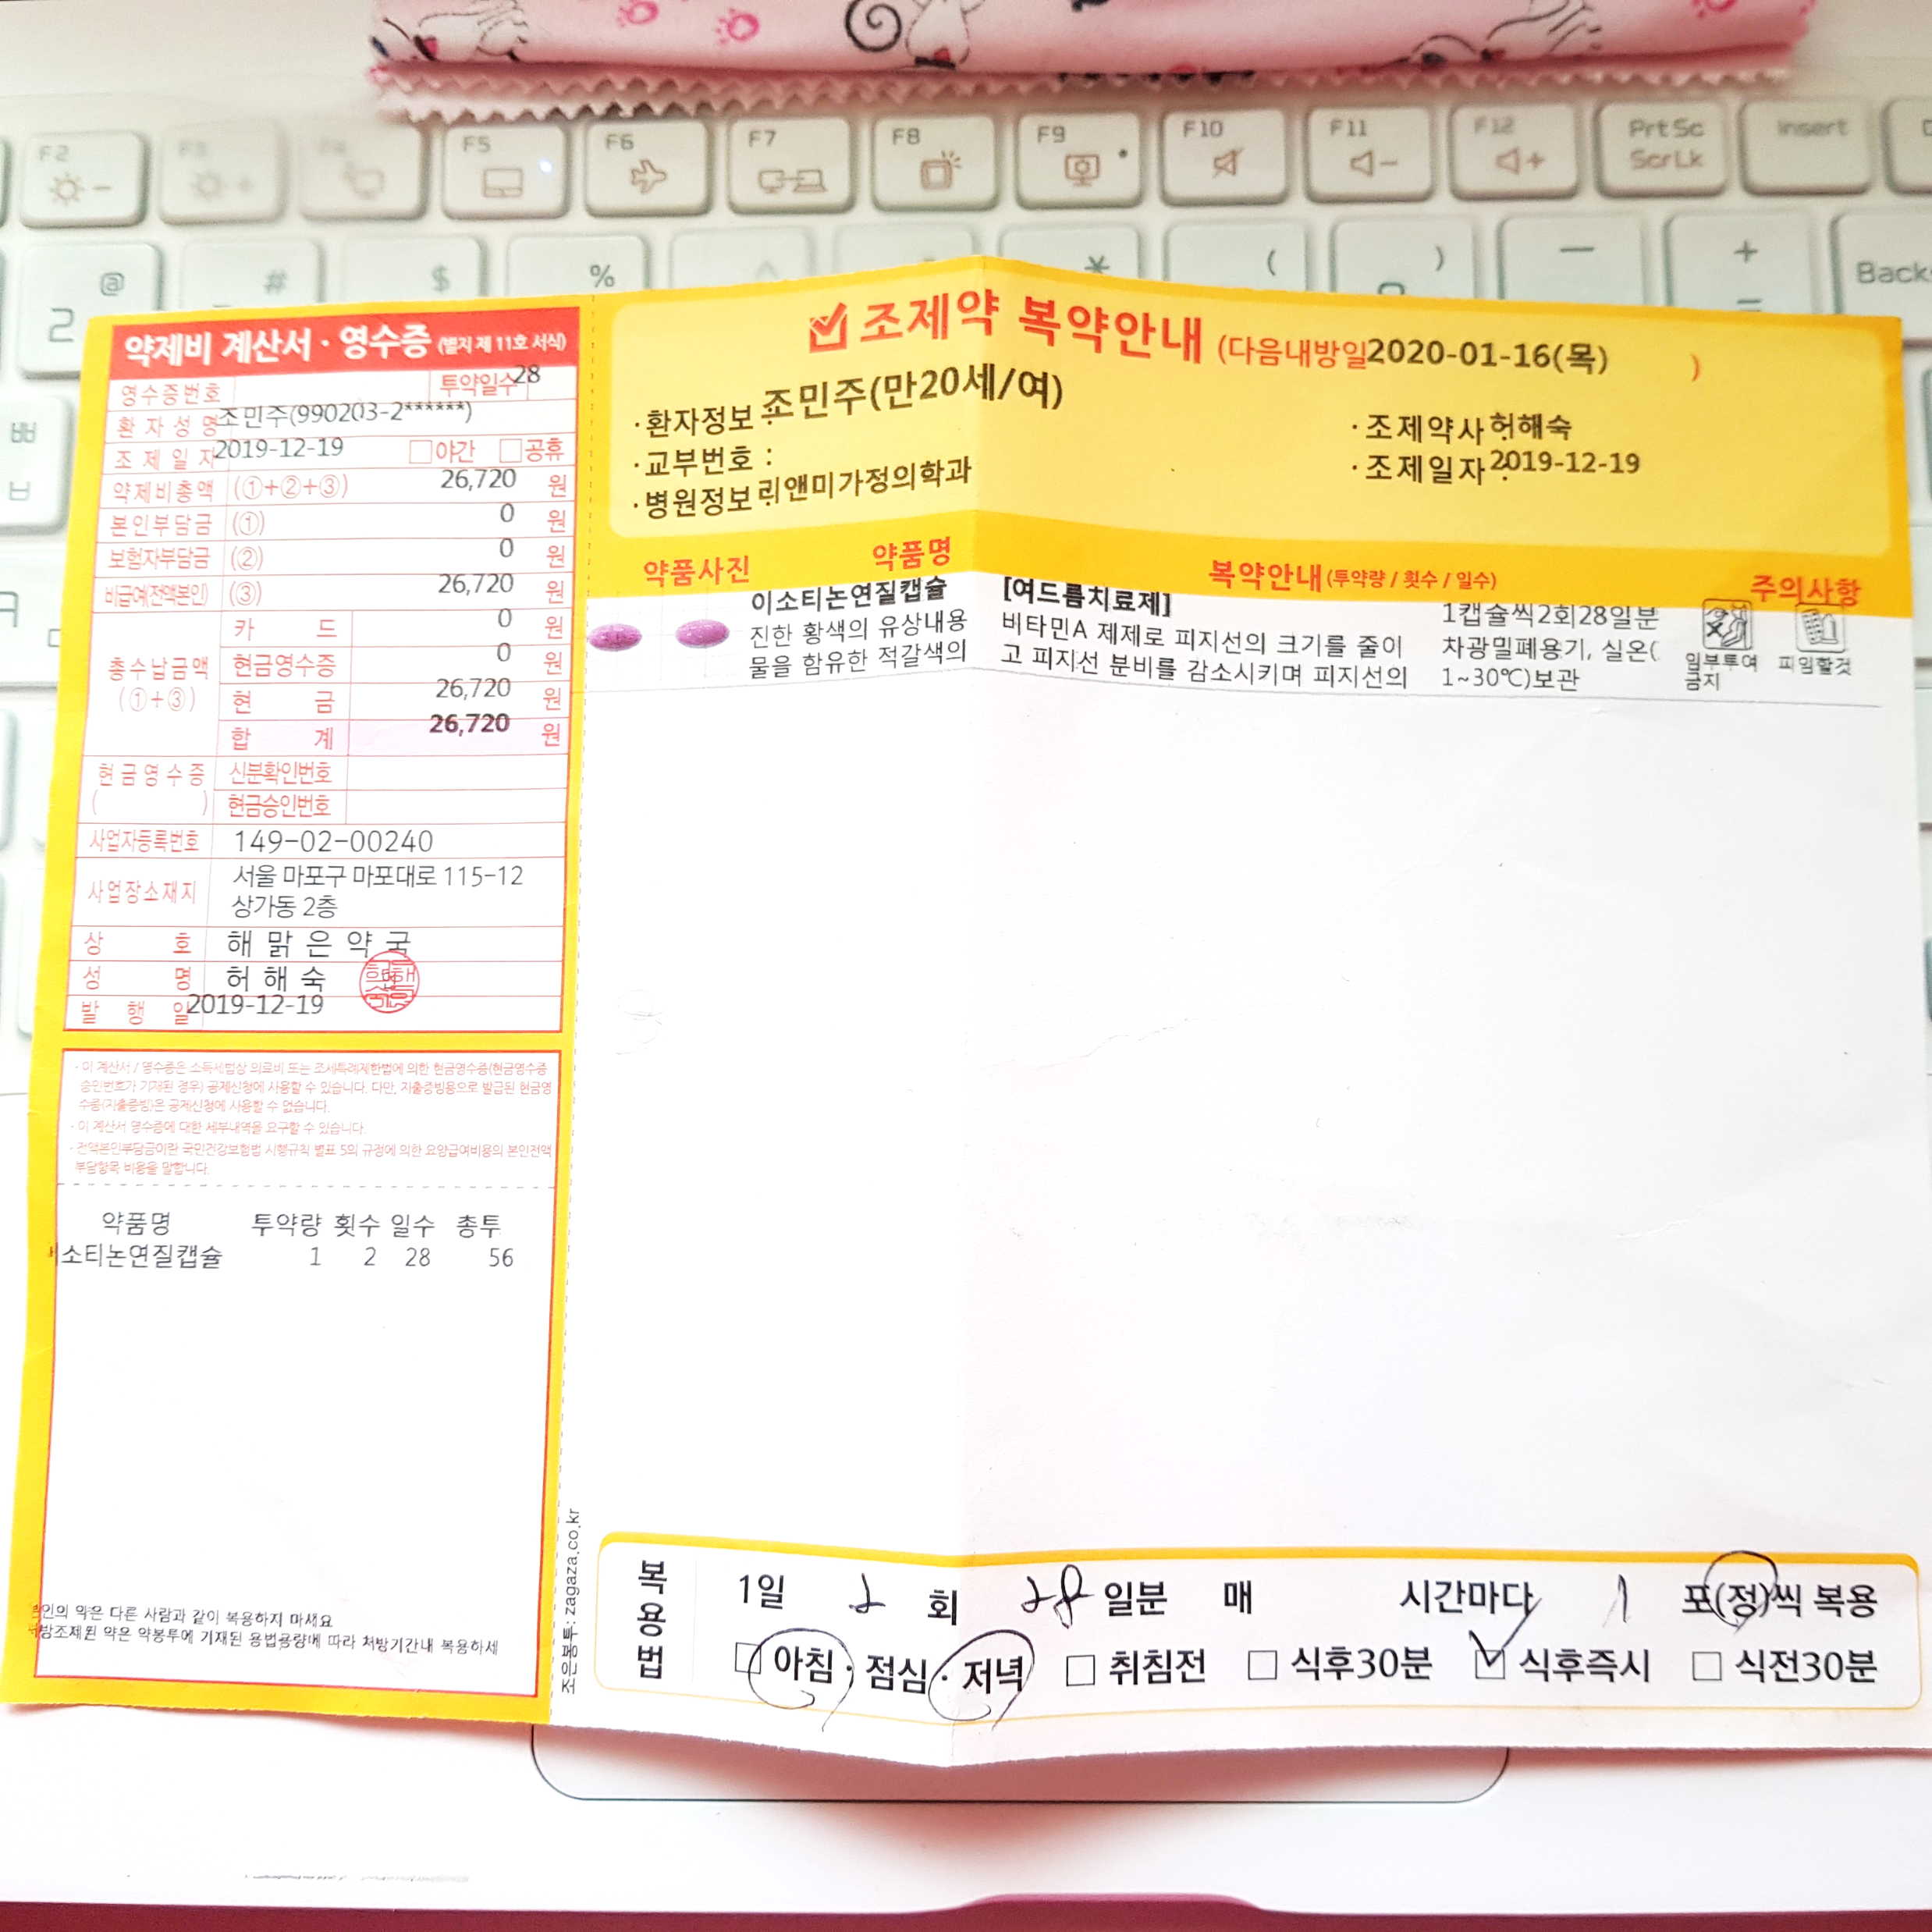 F2
F5
F6
F7
F8
F9
F10
F11
F12
PrtSc
ScrLk
Insert
@
2
#
$
%
*
(
)
Back
ㅃ
ㅂ
약제비 계산서 · 영수증 (별지 제 11호 서식)
영수증번호 투약일수 28
환자성명 조민주(990203-2******)
조제일자 2019-12-19 □야간 □공휴
약제비총액 (①+②+③) 26,720 원
본인부담금 (①) 0 원
보험자부담금 (②) 0 원
비급여(전액본인) (③) 26,720 원
총수납금액 (①+③)
카 드 0 원
현금영수증 0 원
현 금 26,720 원
합 계 26,720 원
현금영수증 ( )
신분확인번호
현금승인번호
사업자등록번호 149-02-00240
사업장소재지 서울 마포구 마포대로 115-12
상가동 2층
상 호 해 맑 은 약 국
성 명 허 해 숙
발 행 일 2019-12-19
· 이 계산서 / 영수증은 소득세법상 의료비 또는 조세특례제한법에 의한 현금영수증(현금영수증
승인번호가 기재된 경우) 공제신청에 사용할 수 있습니다. 다만, 지출증빙용으로 발급된 현금영
수증(지출증빙)은 공제신청에 사용할 수 없습니다.
· 이 계산서 영수증에 대한 세부내역을 요구할 수 있습니다.
· 전액본인부담금이란 국민건강보험법 시행규칙 별표 5의 규정에 의한 요양급여비용의 본인전액
부담항목 비용을 말합니다.
약품명 투약량 횟수 일수 총투
이소티논연질캡슐 1 2 28 56
인의 약은 다른 사람과 같이 복용하지 마세요
방조제된 약은 약봉투에 기재된 용법용량에 따라 처방기간내 복용하세
조은봉투: zagaza.co.kr
조제약 복약안내 (다음내방일 2020-01-16(목) )
·환자정보 : 조민주(만20세/여)
·교부번호 :
·병원정보 리앤미가정의학과
·조제약사 허해숙
·조제일자 : 2019-12-19
약품사진 약품명 복약안내 (투약량 / 횟수 / 일수) 주의사항
이소티논연질캡슐
진한 황색의 유상내용
물을 함유한 적갈색의
[여드름치료제]
비타민A 제제로 피지선의 크기를 줄이
고 피지선 분비를 감소시키며 피지선의
1캡슐씩2회28일분
차광밀폐용기, 실온(
1~30℃)보관
임부투여
금지
피임할것
복용법
1일 2 회 28 일분 매 시간마다 1 포(정)씩 복용
□ 아침 · 점심 · 저녁 □ 취침전 □ 식후30분 ☑ 식후즉시 □ 식전30분